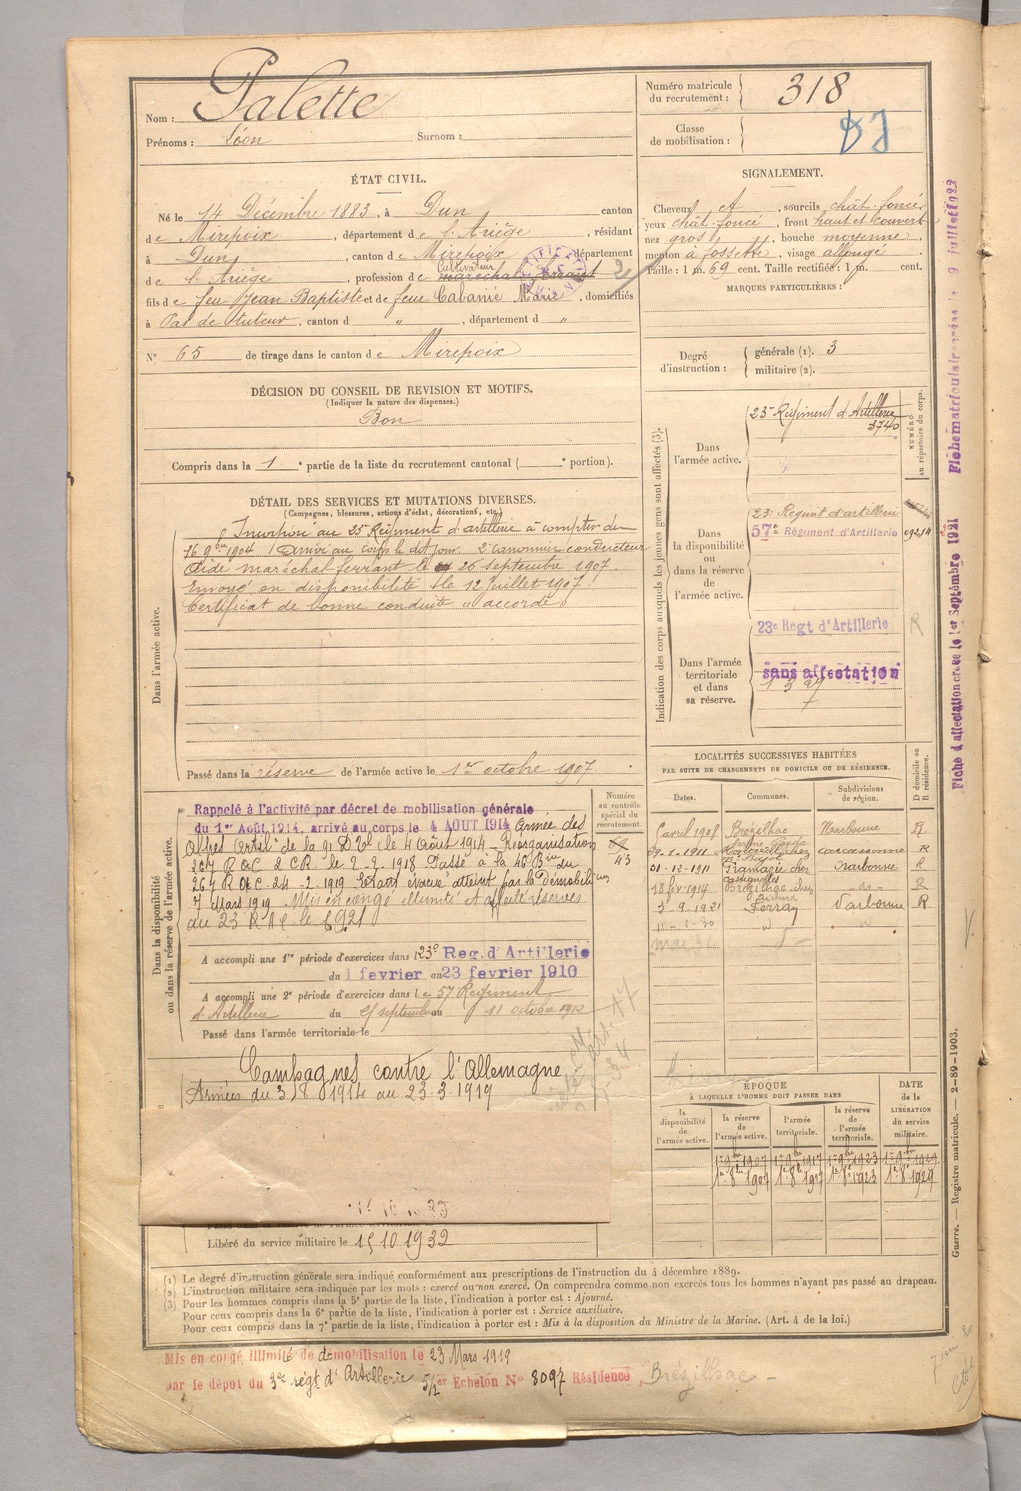 Nom : Palette
Prénoms : Léon Surnom :
Numéro matricule du recrutement : 318
Classe de mobilisation :
ÉTAT CIVIL.
Né le 14 Décembre 1883, à Dun canton
de Mirepoix, département de l'Ariège, résidant
à Dun, canton de Mirepoix, département
de l'Ariège, profession de Cultivateur maréchal ferrant
fils de feu Jean Baptiste et de feue Cabanié Marie, domiciliés
à Pas de tuteur, canton d " , département d "
N° 65 de tirage dans le canton de Mirepoix
SIGNALEMENT.
Cheveux et, sourcils chât. foncé
yeux chât. foncé, front haut et couvert
nez gros, bouche moyenne,
menton à fossette, visage allongé
Taille : 1 m. 69 cent. Taille rectifiée : 1 m. cent.
MARQUES PARTICULIÈRES :
Degré d'instruction : générale (1). 3
militaire (2).
DÉCISION DU CONSEIL DE REVISION ET MOTIFS.
(Indiquer la nature des dispenses.)
Bon
Compris dans la 1e partie de la liste du recrutement cantonal ( e portion).
DÉTAIL DES SERVICES ET MUTATIONS DIVERSES.
(Campagnes, blessures, actions d'éclat, décorations, etc.)
Dans l'armée active.
Incorporé au 23 Régiment d'artillerie à compter du
16 9bre 1904 Arrivé au corps le dit jour 2e canonnier conducteur
Aide maréchal ferrant le 26 septembre 1907.
Envoyé en disponibilité le 12 Juillet 1907
Certificat de bonne conduite "accordé"
Passé dans la réserve de l'armée active le 1er octobre 1907.
Indication des corps auxquels les jeunes gens sont affectés (3).
NUMÉRO au répertoire du corps.
Dans l'armée active.
23e Régiment d'Artillerie
3740
Dans la disponibilité ou dans la réserve de l'armée active.
23e Regiment d'artillerie
57e Régiment d'Artillerie
23e Regt d'Artillerie
R
Dans l'armée territoriale et dans sa réserve.
sans affectation
Fiche matriculaire
Fiche d'affectation créée le 1er Septembre 1921
Dans la disponibilité ou dans la réserve de l'armée active.
Rappelé à l'activité par décret de mobilisation générale
du 1er Août 1914, arrivé au corps le 4 AOUT 1914 Armée des
Alpes Artil. de la 91 D. le 4 Août 1914 Réorganisation
267 R A C 2 C R le 2-2-1918 Passé à la 46 Bie du
267 R A C 24-2-1919
7 Mars 1919 Mis en congé illimité et affecté réserves
au 23 R A C
Numéro au contrôle spécial du recrutement.
43
A accompli une 1re période d'exercices dans l 23e Reg. d'Artillerie
du 1 fevrier au 23 fevrier 1910
A accompli une 2e période d'exercices dans le 57 Régiment
d'Artillerie du 25 septembre au 11 octobre 1912
Passé dans l'armée territoriale le
Campagnes contre l'Allemagne
Armées du 3/8 1914 au 23-3-1919
Libéré du service militaire le 15 10 1932
LOCALITÉS SUCCESSIVES HABITÉES
PAR SUITE DE CHANGEMENTS DE DOMICILE OU DE RÉSIDENCE.
D domicile ou R résidence.
Dates. Communes. Subdivisions de région.
5 avril 1908 Brézilhac Narbonne R
29-1-1911 carcassonne R
01-12-1911 Narbonne R
18 fév 1914 Brézilhac chez R
3-9-1921 Ferran Narbonne R
ÉPOQUE
À LAQUELLE L'HOMME DOIT PASSER DANS
DATE de la LIBÉRATION du service militaire.
la disponibilité de l'armée active. la réserve de l'armée active. l'armée territoriale. la réserve de l'armée territoriale.
1er 9bre 1907 1er 9bre 1917 1er 9bre 1923 1er 9bre 1929
1er 8bre 1907 1er 8bre 1917 1er 8bre 1923 1er 8bre 1929
(1) Le degré d'instruction générale sera indiqué conformément aux prescriptions de l'instruction du 4 décembre 1889.
(2) L'instruction militaire sera indiquée par les mots : exercé ou non exercé. On comprendra comme non exercés tous les hommes n'ayant pas passé au drapeau.
(3) Pour les hommes compris dans la 5e partie de la liste, l'indication à porter est : Ajourné.
Pour ceux compris dans la 6e partie de la liste, l'indication à porter est : Service auxiliaire.
Pour ceux compris dans la 7e partie de la liste, l'indication à porter est : Mis à la disposition du Ministre de la Marine. (Art. 4 de la loi.)
Guerre. — Registre matricule. — 2-89-1903.
Mis en congé illimité de démobilisation le 23 Mars 1919
par le dépot du 3e regt d'Artillerie 5/1er Echelon N° 8097 Résidence Brézilhac